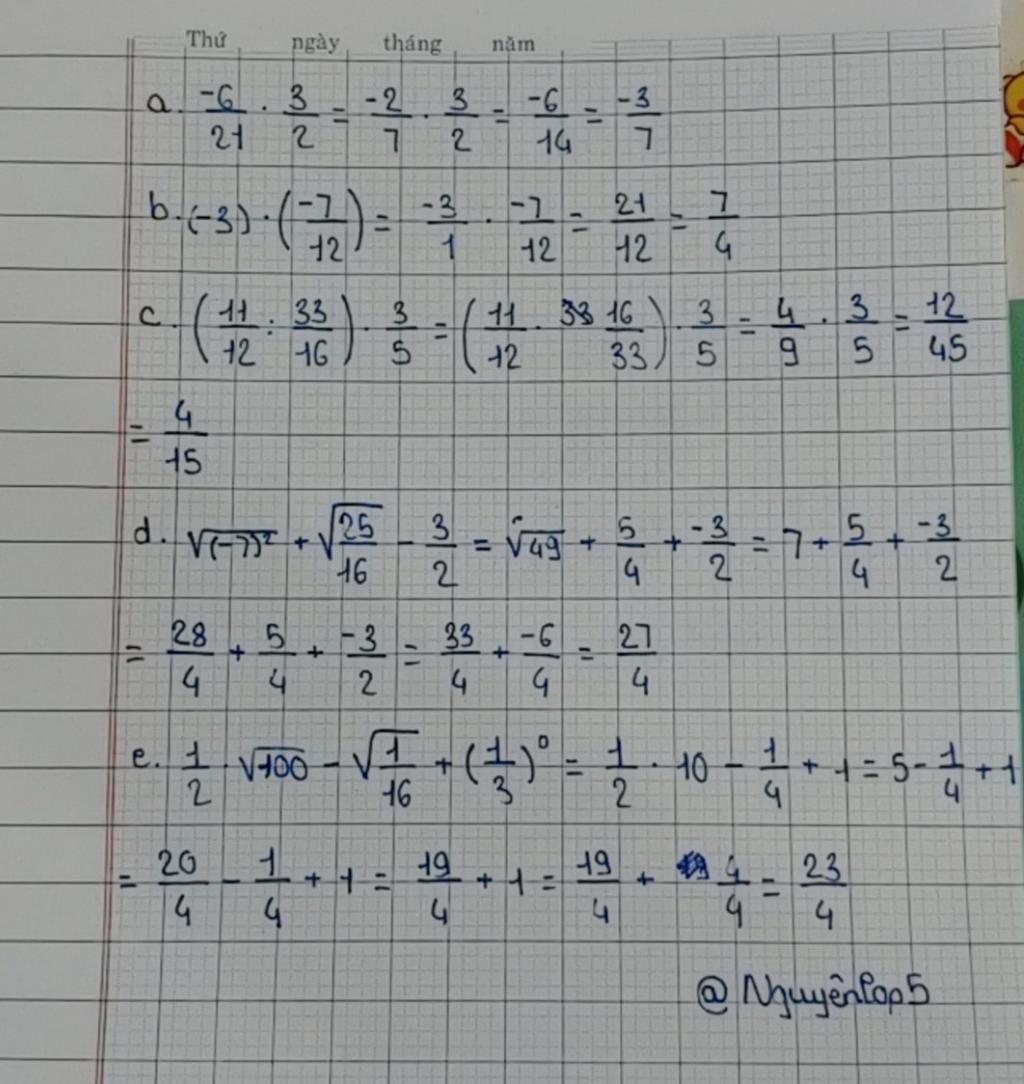 Thứ ngày tháng năm
a. -6/21 . 3/2 = -2/7 . 3/2 = -6/14 = -3/7
b. (-3) . (-7/12) = -3/1 . -7/12 = 21/12 = 7/4
c. (11/12 : 33/16) . 3/5 = (11/12 . 16/33) . 3/5 = 4/9 . 3/5 = 12/45
= 4/15
d. √(-7)² + √25/16 - 3/2 = √49 + 5/4 + -3/2 = 7 + 5/4 + -3/2
= 28/4 + 5/4 + -3/2 = 33/4 + -6/4 = 27/4
e. 1/2 . √100 - √1/16 + (1/3)⁰ = 1/2 . 10 - 1/4 + 1 = 5 - 1/4 + 1
= 20/4 - 1/4 + 1 = 19/4 + 1 = 19/4 + 4/4 = 23/4
@Nguyênlop5